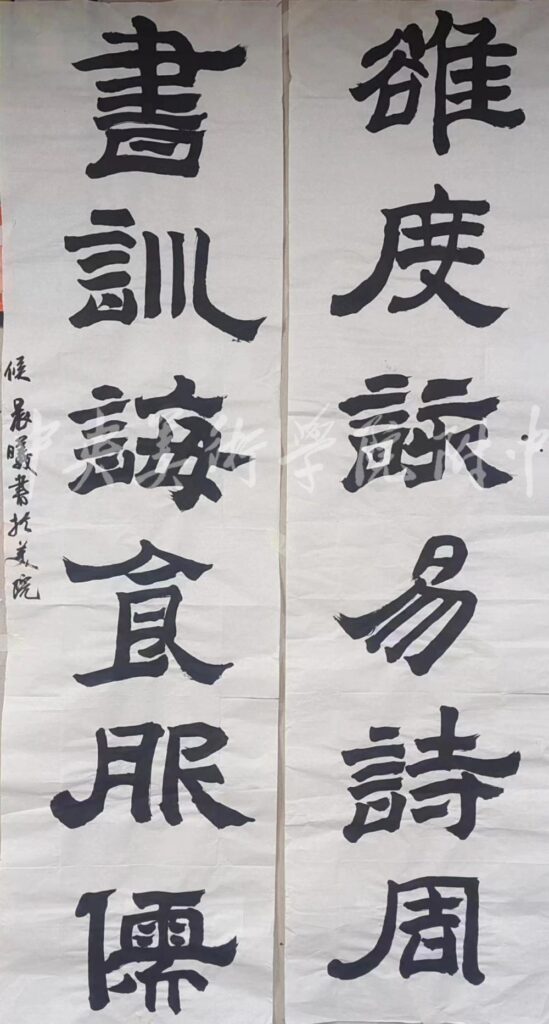 度詠易詩周
書訓誨食服儒
候晨曦書於美院
中央美術學院附中